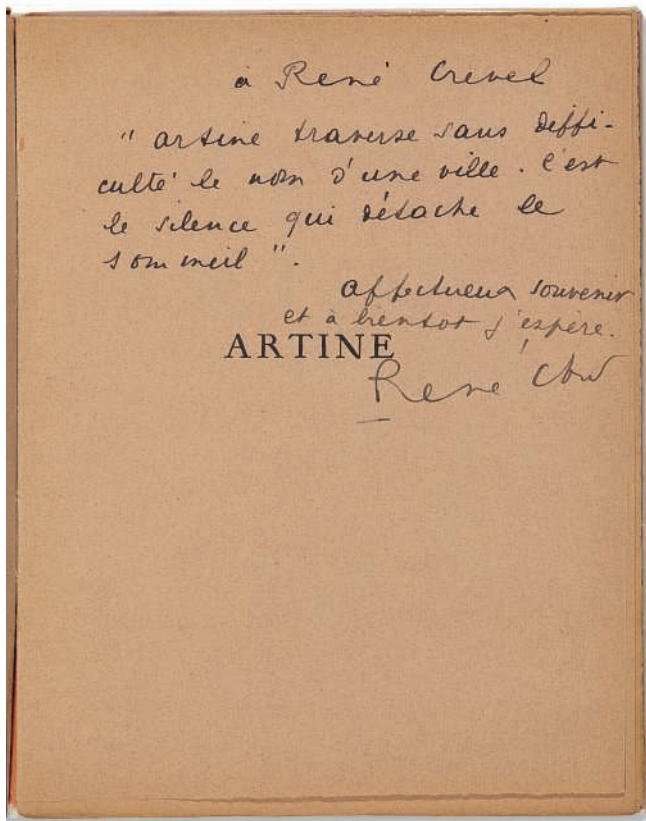 à René Crevel
" artine traverse sans diffi-
culté le nom d'une ville. C'est
le silence qui détache le
sommeil ".
affectueux souvenir
et à bientot j'espère.
ARTINE
René Char